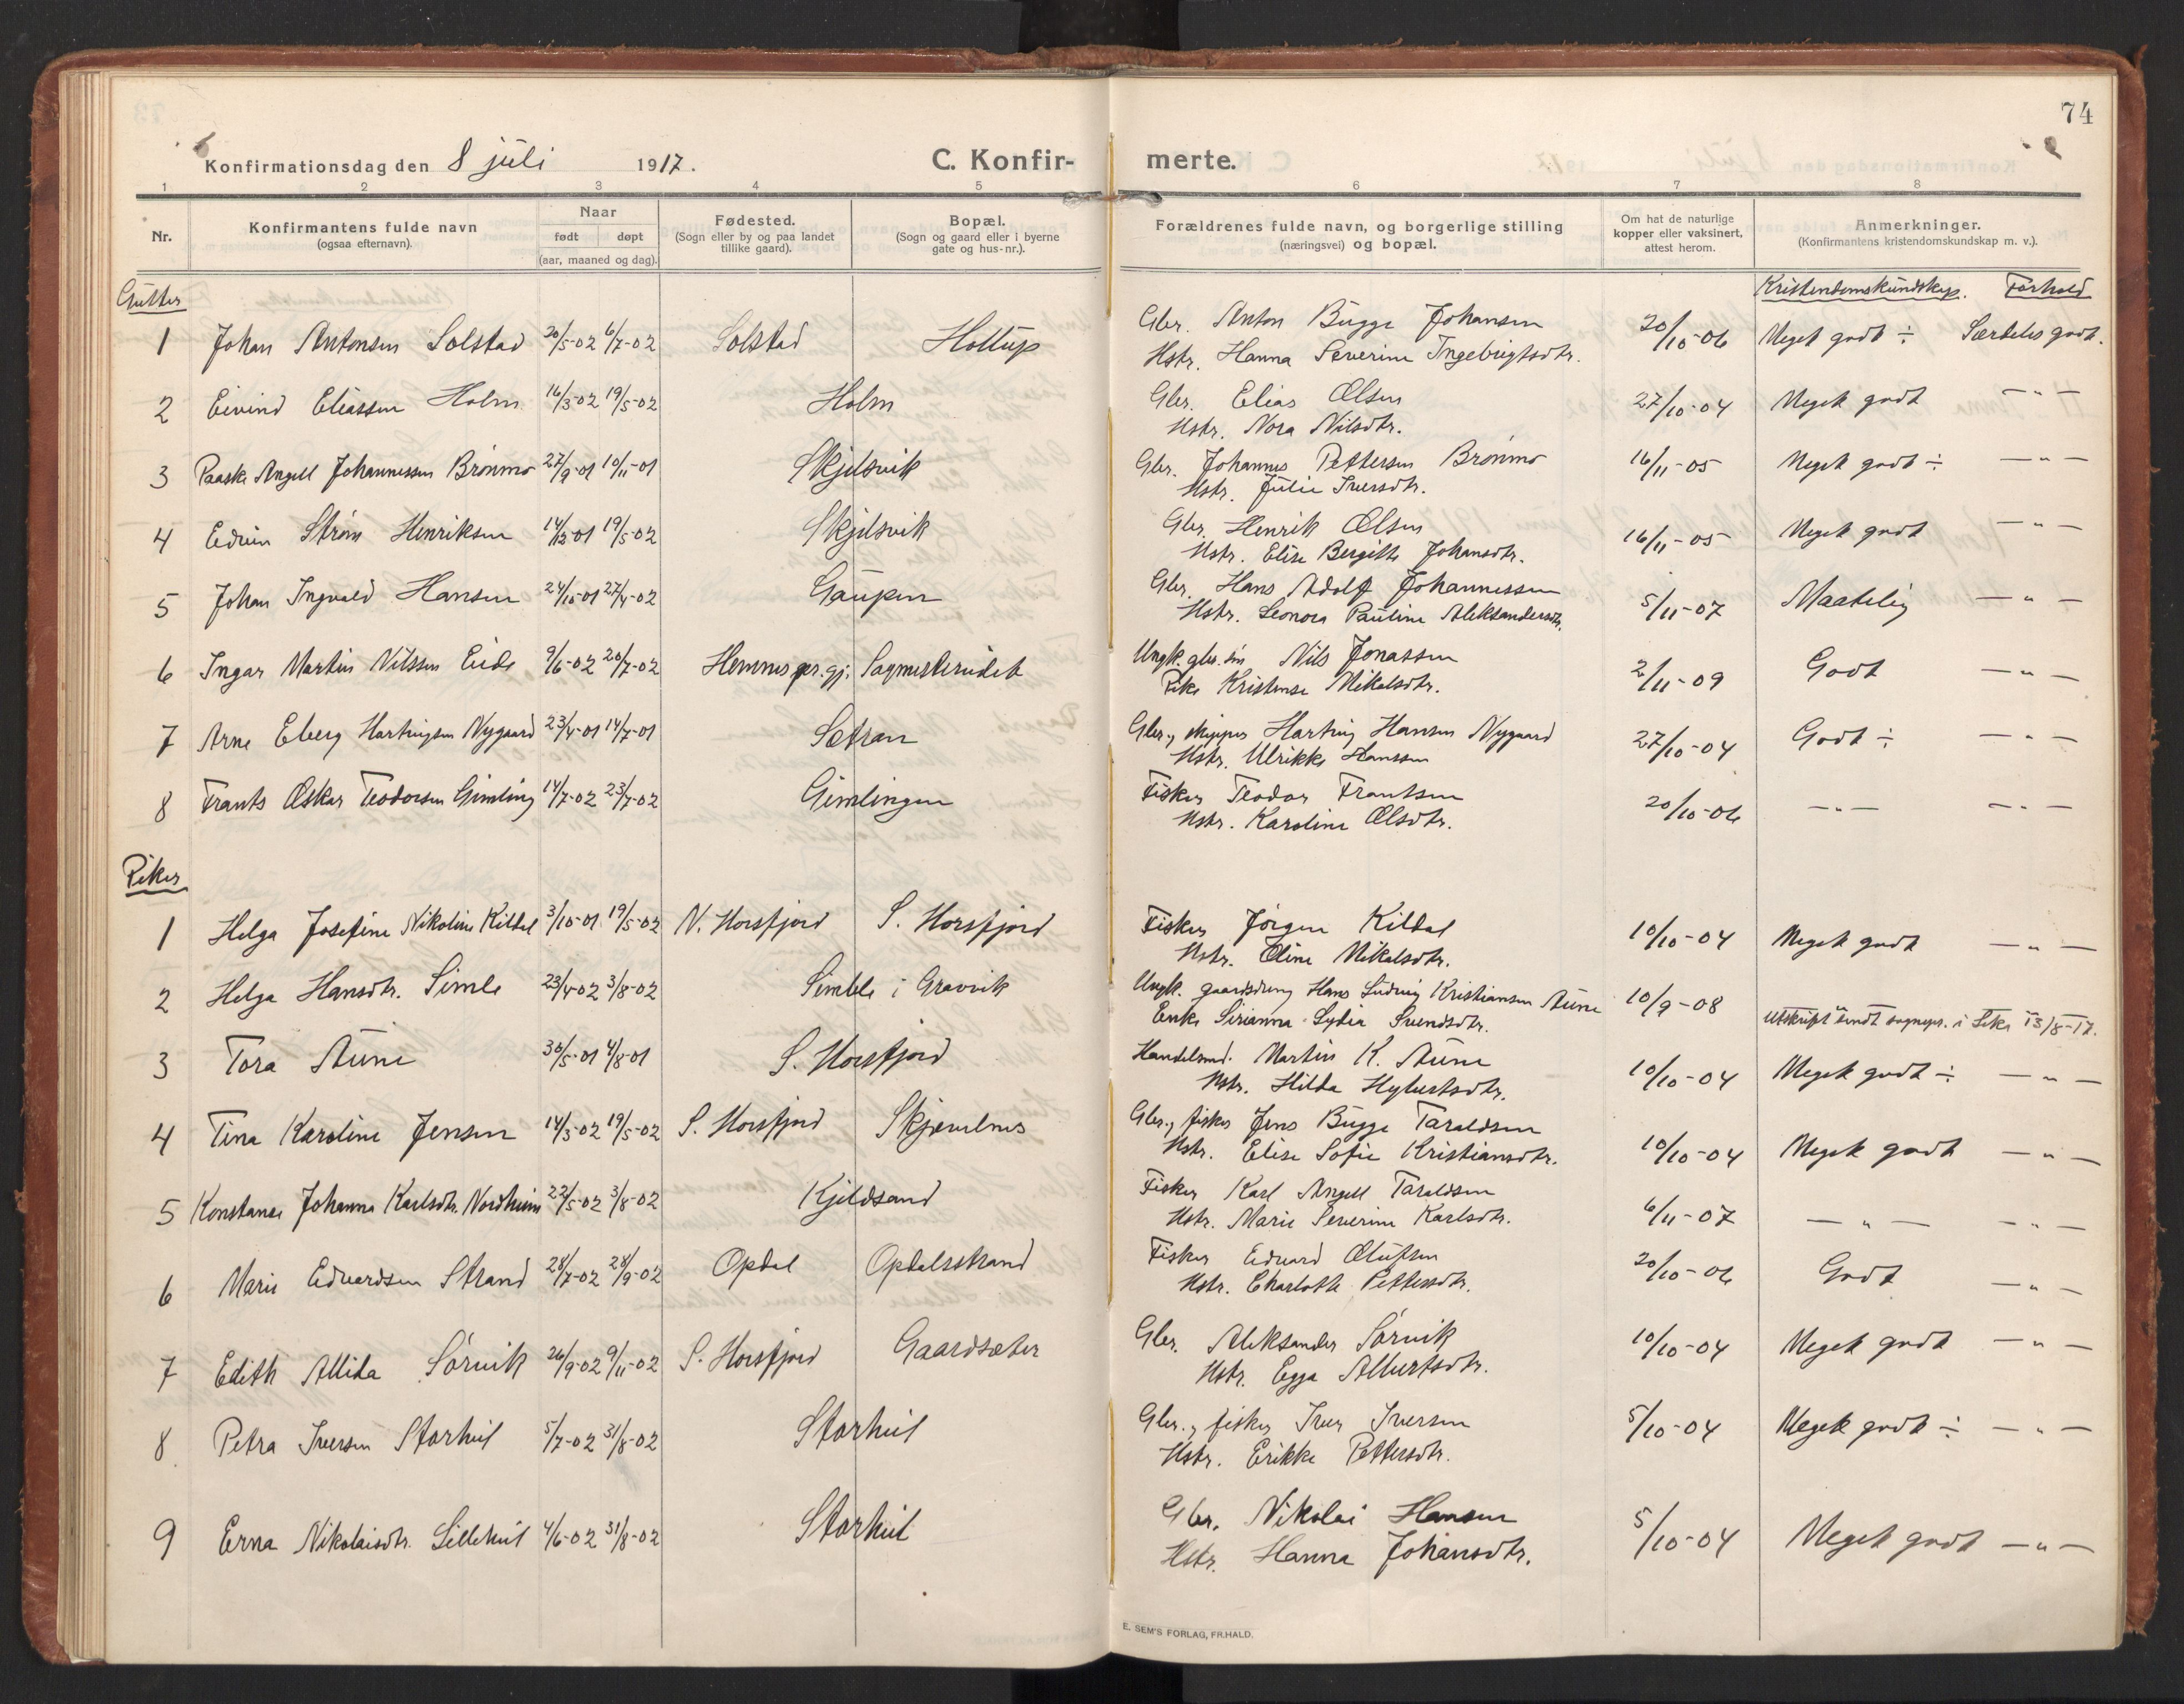 74
Konfirmationsdag den 8 juli 1917. C. Konfir- merte.
1 2 3 4 5 6 7 8
Nr. Konfirmantens fulde navn (ogsaa efternavn). Naar født døpt (aar, maaned og dag). Fødested. (Sogn eller by og paa landet tillike gaard). Bopæl. (Sogn og gaard eller i byerne gate og hus-nr.). Forældrenes fulde navn, og borgerlige stilling (næringsvei) og bopæl. Om hat de naturlige kopper eller vaksinert, attest herom. Anmerkninger. (Konfirmantens kristendomskundskap m. v.).
Gutter Kristendomskundskap. Forhold
1 Johan Antonsen Solstad 20/5-02 6/7-02 Solstad Hollup Gbr. Anton Bugge Johansen 20/10-06 Meget godt ÷ Særdeles godt.
Hstr. Hanna Severine Ingebrigtsdtr.
2 Eivind Eliassen Holm 16/3-02 19/5-02 Holm Gbr. Elias Olsen 27/10-04 Meget godt — " —
Hstr. Nora Nilsdtr.
3 Paaske Angell Johannessen Brønmo 27/9-01 10/11-01 Skjelsvik Gbr. Johannes Pettersen Brønmo 16/11-05 Meget godt ÷ — " —
Hstr. Julie Iversdtr.
4 Edvin Strøm Henriksen 14/12-01 19/5-02 Skjelsvik Gbr. Henrik Olsen 16/11-05 Meget godt — " —
Hstr. Elise Bergitte Johansdtr.
5 Johan Ingvald Hansen 24/10-01 27/4-02 Gaupen Gbr. Hans Adolf Johannessen 5/11-07 Maatelig — " —
Hstr. Leonora Pauline Aleksandersdtr.
6 Ingar Martin Nilssen Eide 9/6-02 20/7-02 Hemnes pr.gj. Sagmesterudet Ungk. gbr. søn Nils Jonassen 2/11-09 Godt — " —
Pike Kristense Mikalsdtr.
7 Arne Eberg Hartvigsen Nygaard 23/4-01 14/7-01 Setran Gbr. og skipper Hartvig Hansen Nygaard 27/10-04 Godt ÷ — " —
Hstr. Ulrikke Hanssen
8 Frants Oskar Teodorsen Gimling 14/7-02 23/7-02 Gimlingen Fisker Teodor Frantsen 20/10-06 — " — — " —
Hstr. Karoline Olsdtr.
Piker
1 Helga Josefine Nikoline Kildal 3/10-01 19/5-02 N. Horsfjord S. Horsfjord Fisker Jørgen Kildal 10/10-04 Meget godt — " —
Hstr. Oline Mikalsdtr.
2 Helga Hansdtr. Simle 23/4-02 3/8-02 Simle i Gravvik Ungk. gaardsdreng Hans Ludvig Kristiansen Aune 10/9-08
Enke Sirianna Lydia Svendsdtr. Utskrift sendt sognepr. i Leka 13/8-17.
3 Tora Aune 30/5-01 4/8-01 S. Horsfjord Handelsmd. Martin K. Aune 10/10-04 Meget godt ÷ — " —
Hstr. Hilda Hybertsdtr.
4 Tina Karoline Jensen 14/3-02 19/5-02 S. Horsfjord Skjævelnes Gbr. og fisker Jens Bugge Taraldsen 10/10-04 Meget godt — " —
Hstr. Elise Sofie Kristiansdtr.
5 Konstanse Johanna Karlsdtr. Nordheim 22/5-02 3/8-02 Kjeldsand Fisker Karl Angell Taraldsen 6/11-07 — " — — " —
Hstr. Marie Severine Karlsdtr.
6 Marie Edvardsen Strand 28/7-02 28/9-02 Opdal Opdalsstrand Fisker Edvard Olufsen 20/10-06 Godt — " —
Hstr. Charlotte Pettersdtr.
7 Edith Allida Sørvik 26/9-02 9/11-02 S. Horsfjord Gaardsæter Gbr. Aleksander Sørvik 10/10-04 Meget godt — " —
Hstr. Egga Albertsdtr.
8 Petra Iversen Storhul 5/7-02 31/8-02 Storhul Gbr. og fisker Iver Iversen 5/10-04 Meget godt ÷ — " —
Hstr. Erikke Pettersdtr.
9 Erna Nikolaisdtr. Lillehul 4/6-02 31/8-02 Storhul Gbr. Nikolai Hansen 5/10-04 Meget godt — " —
Hstr. Hanna Johansdtr.
E. SEM'S FORLAG, FR.HALD.